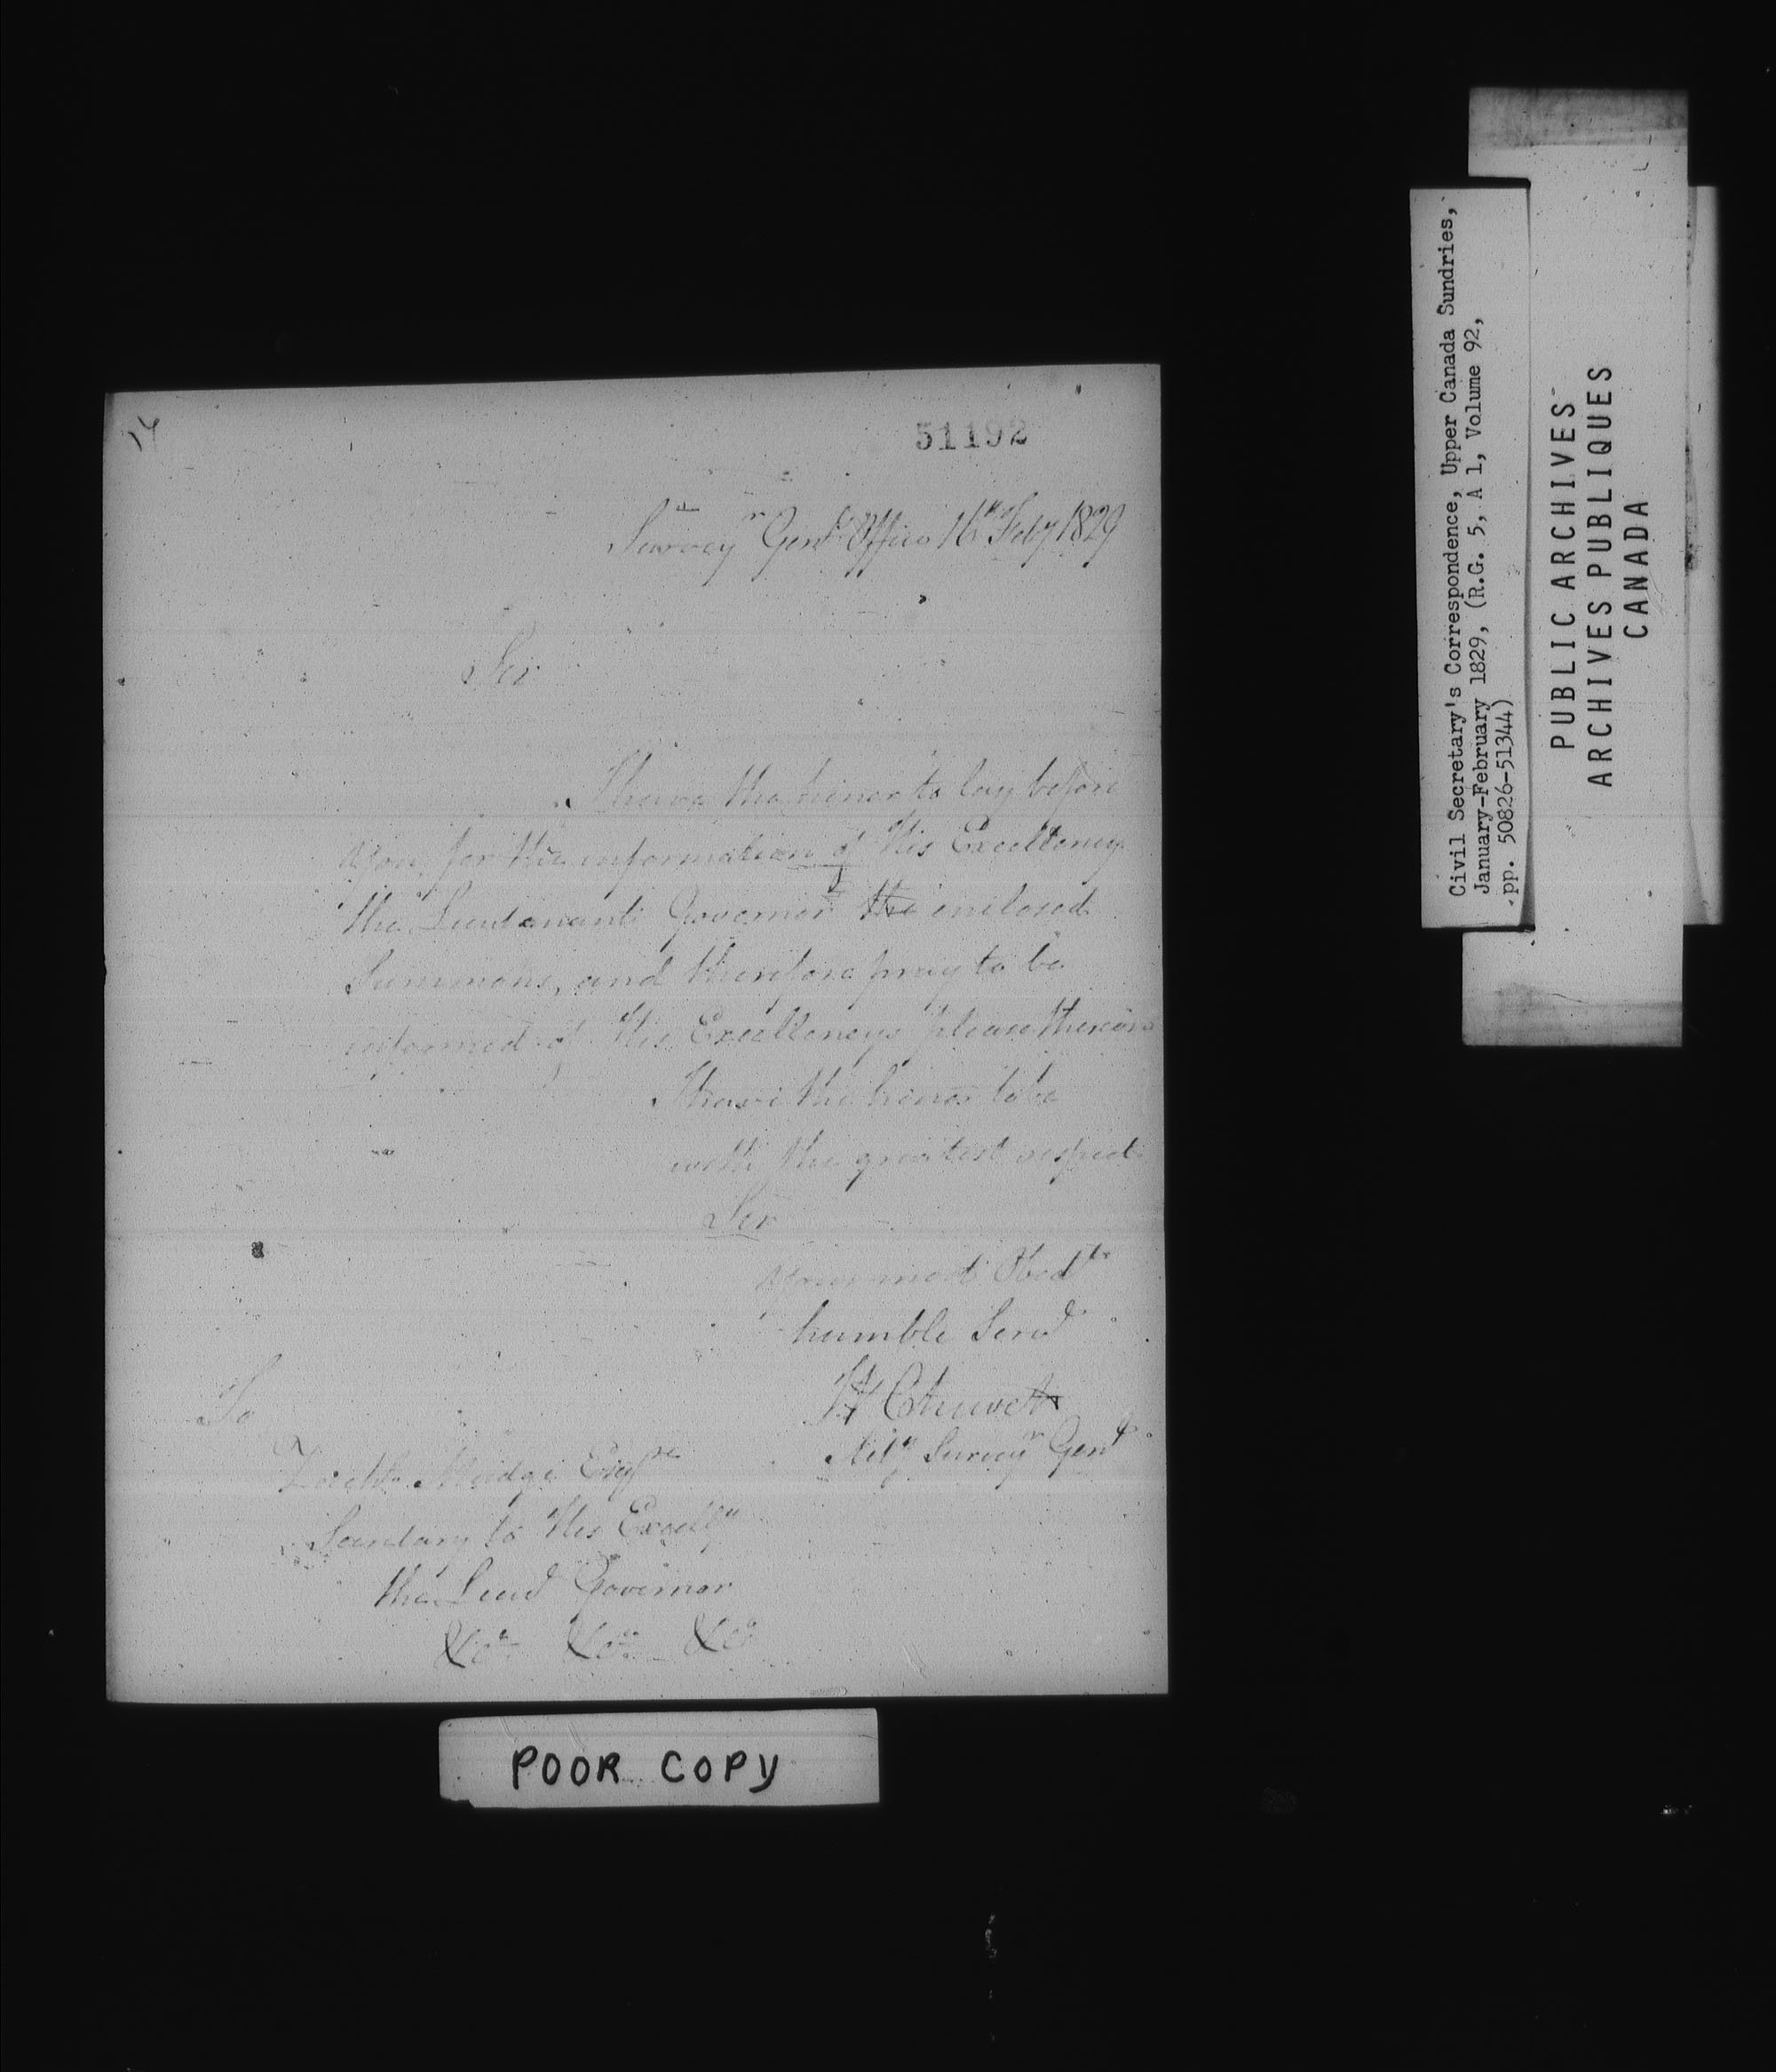 14
51192
Survey^r Gen^l Office 16^th Feby 1829
Sir
I have the honor to lay before
you, for the information of His Excellency
the Lieutenant Governor the inclosed
Summons, and therefore pray to be
informed of His Excellencys please thereon
I have the honor to be
with the greatest respect
Sir
Your most Obed^t
humble Serv^t
W Chewett
Act^g Survey^r Gen^l
To
Zach^h Mudge Esq^re
Secretary to His Excell^cy
the Lieut Governor
&c^a &c^a &c^a
POOR COPY
Civil Secretary's Correspondence, Upper Canada Sundries,
January-February 1829, (R.G. 5, A 1, Volume 92,
pp. 50826-51344)
PUBLIC ARCHIVES
ARCHIVES PUBLIQUES
CANADA